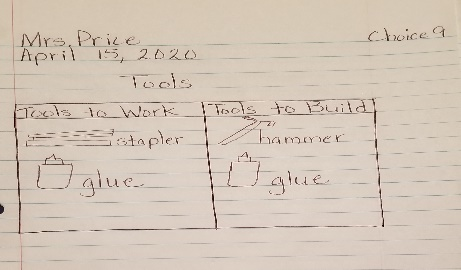 Mrs. Price
Choice 9
April 15, 2020
Tools
Tools to Work
Tools to Build
stapler
hammer
glue
glue